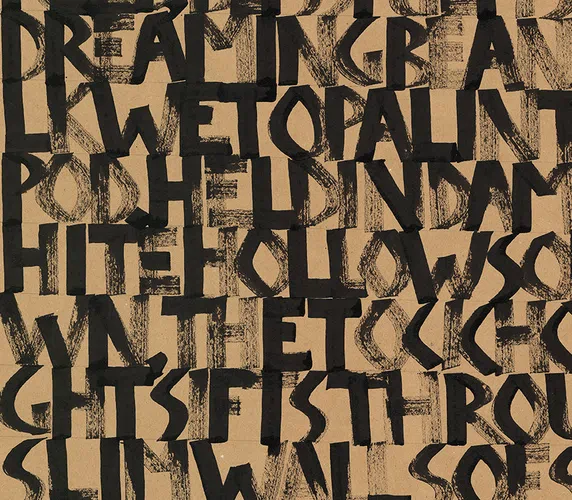 DREAMINGBEAN
LKWETOPALINT
POD,HELDINDAM
HITEHOLLOWSO
WN,THETOCICHO
GHTSFISTHROU